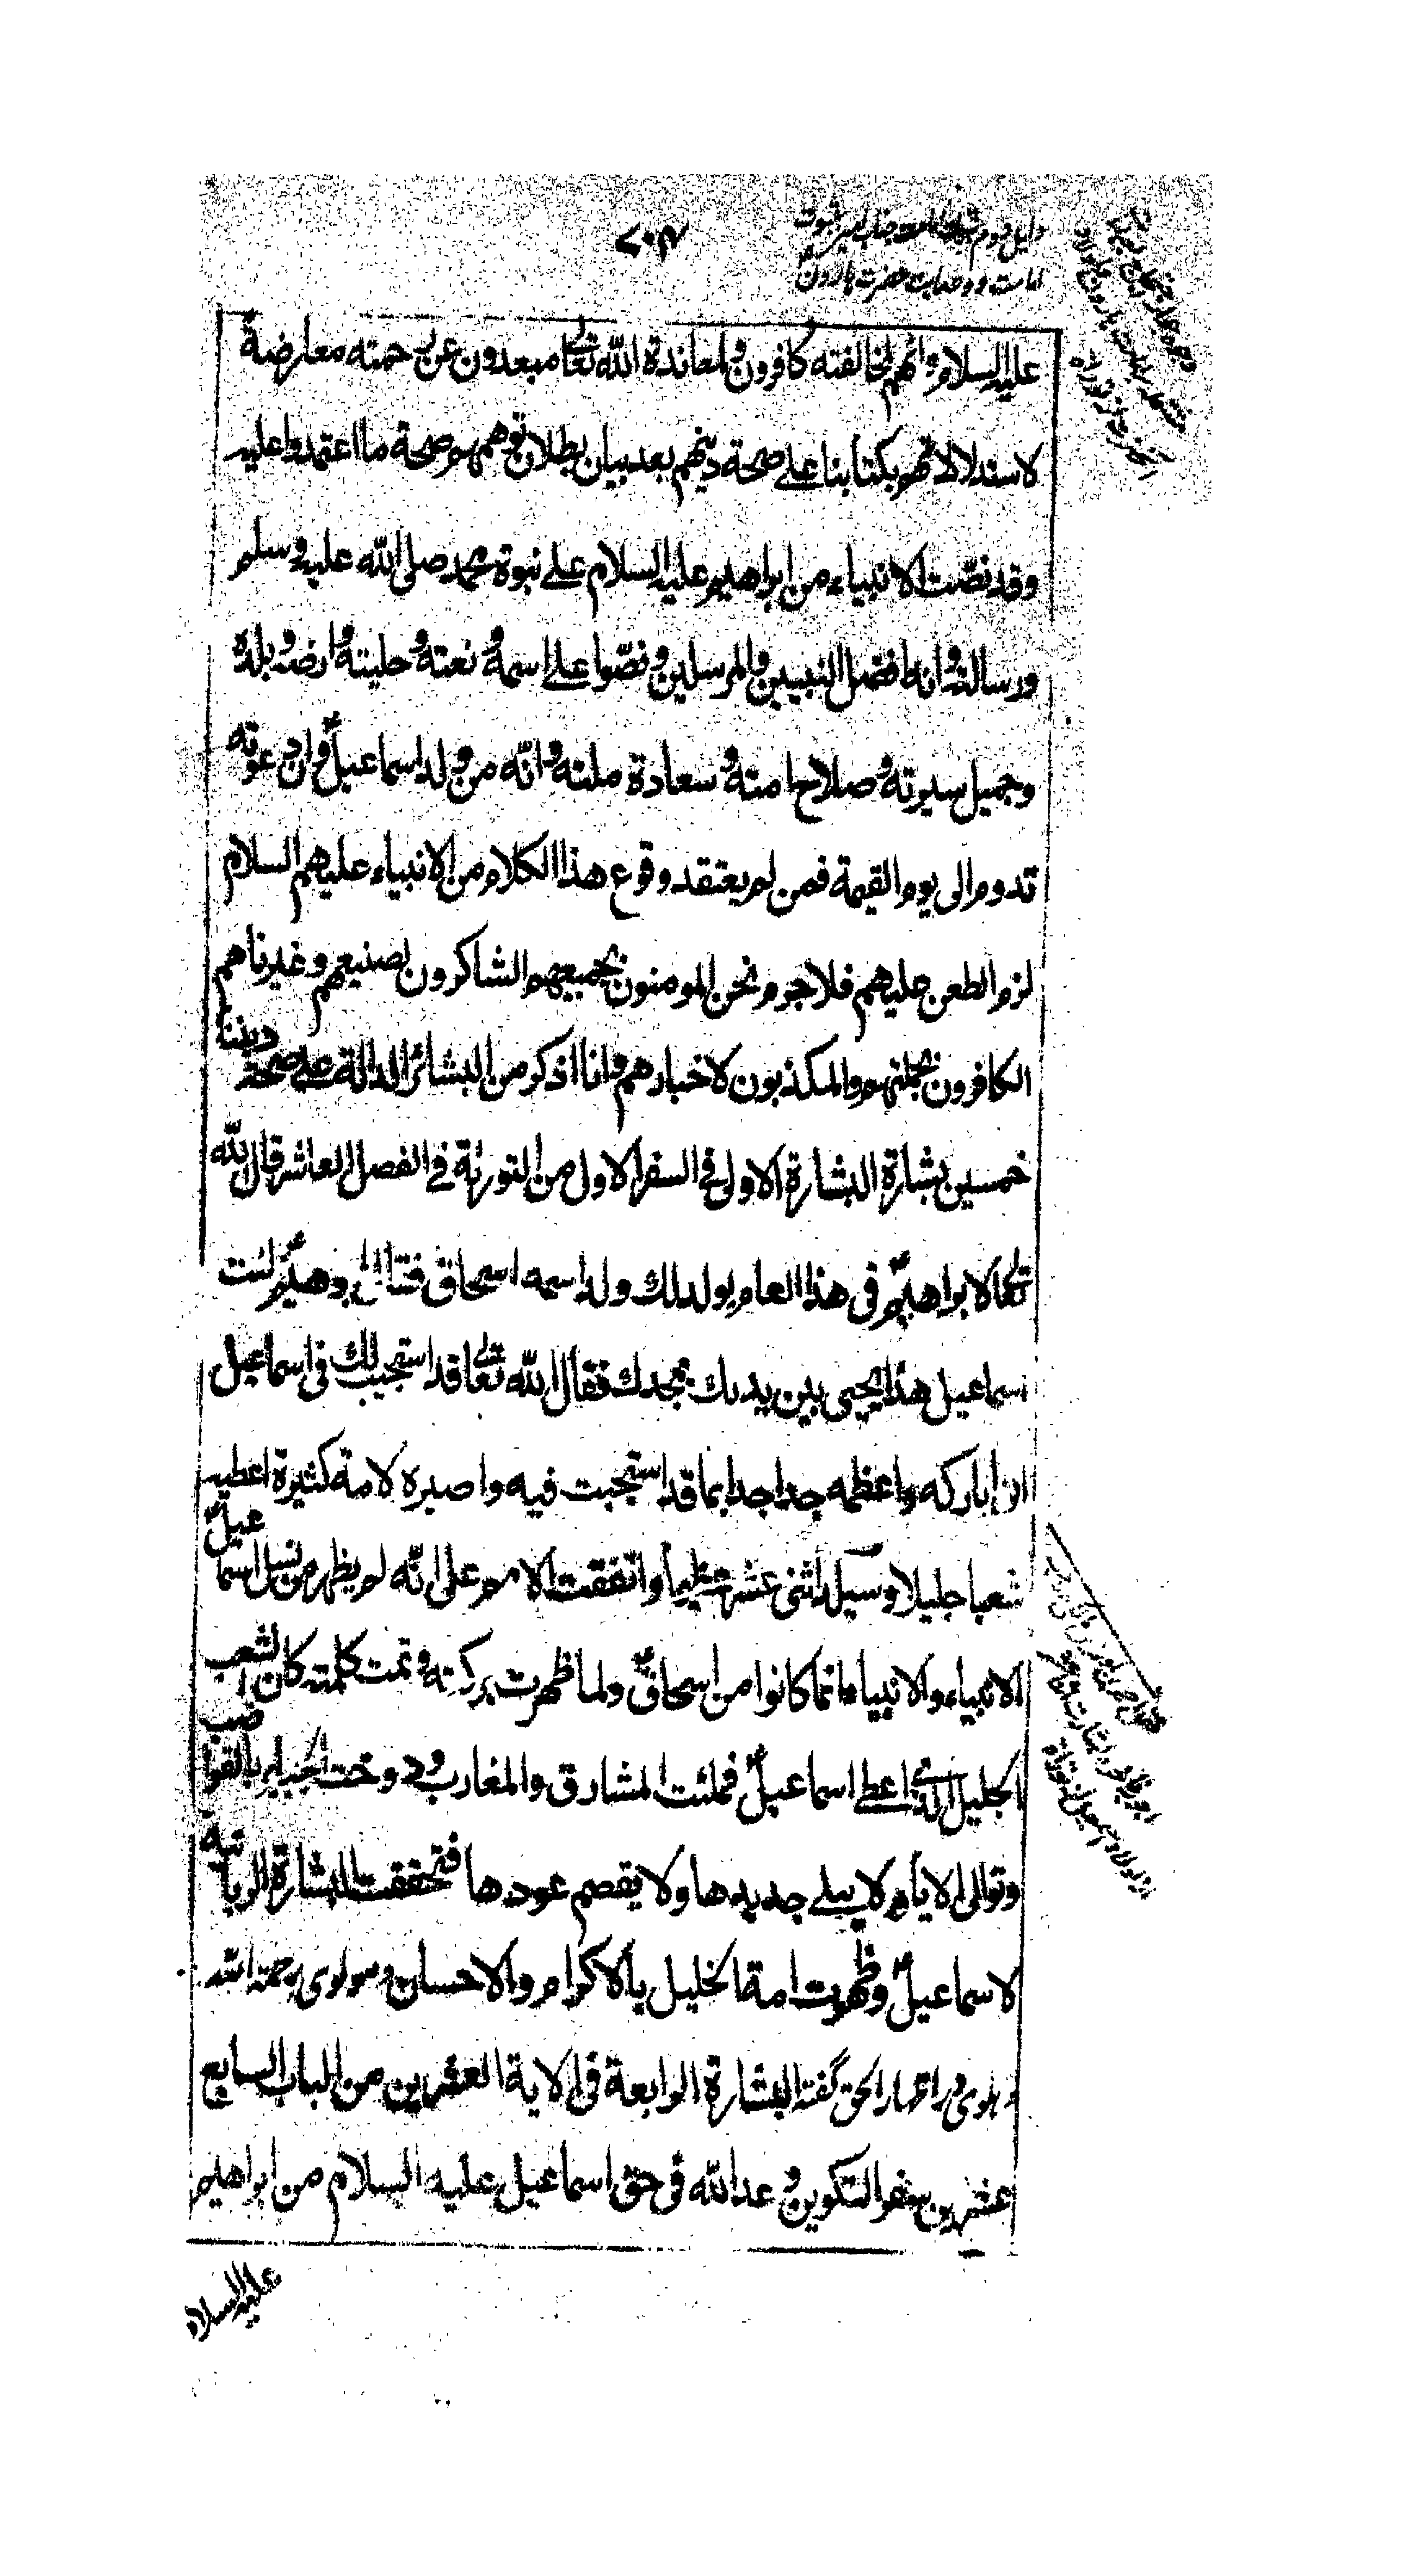 ۷۰۴
دلیل دوم جناب امیر ثبوت
امامت و وصایت حضرت هارون
علیه السلام وانهم لمخالفته کافرون ولمعاندة الله تعالی مبعدون عن رحمته معارضة
لاستدلالاتهم بکتابنا علی صحة دینهم بعد بیان بطلان توهمهم وصحة ما اعتمدوا علیه
وقد نصّت الانبیاء من ابراهیم علیه السلام علی نبوة محمد صلی الله علیه وسلم
ورسالته وانه افضل النبیین والمرسلین ونصّوا علی اسمه ونعته وحلیته وارضه وبلده
وجمیل سیرته وصلاح امته وسعادة ملته وانّه من ولد اسماعیل وان دعوته
تدوم الی یوم القیمة فمن لم یعتقد وقوع هذا الکلام من الانبیاء علیهم السلام
لزم الطعن علیهم فلا جرم ونحن المومنون بجمیعهم الشاکرون لصنیعهم وغیرنا هم
الکافرون بجملتهم والمکذبون لاخبارهم وانا اذکر من البشائر الدالة علی صحة دیننا
خمسین بشارة البشارة الاولی فی السفر الاول من التوراة فی الفصل العاشر قال الله
تعالی لابراهیم فی هذا العام یولد لک ولد اسمه اسحاق فقال ابراهیم لیت
اسماعیل هذا یحیی بین یدیک یمجدک فقال الله تعالی قد استجیب لک فی اسماعیل
انی ابارکه واعظمه جدا جدا بما قد استجبت فیه واصیره لامة کثیرة اعطیه
شعبا جلیلا وسیلد اثنی عشر عظیما واتفقت الامم علی انّه لم یظهر من نسل اسماعیل
الانبیاء والانبیاء انما کانوا من اسحاق ولما ظهرت برکته وتمت کلمته کان الشعب
الجلیل الذی اعطی اسماعیل فملئت المشارق والمغارب ودوخت الجبابر بالقواضب
وتوالی الایام لا یبلی جدیدها ولا یقصم عودها فتحققت البشارة الربانیه
لاسماعیل وظهرت امة الخلیل بالاکرام والاحسان ومولوی رحمة الله
دهلوی در اظهار الحق گفته البشارة الرابعة فی الایة العشرین من الباب السابع
عشر من سفر التکوین وعد الله فی حق اسماعیل علیه السلام من ابراهیم
علیه السلام